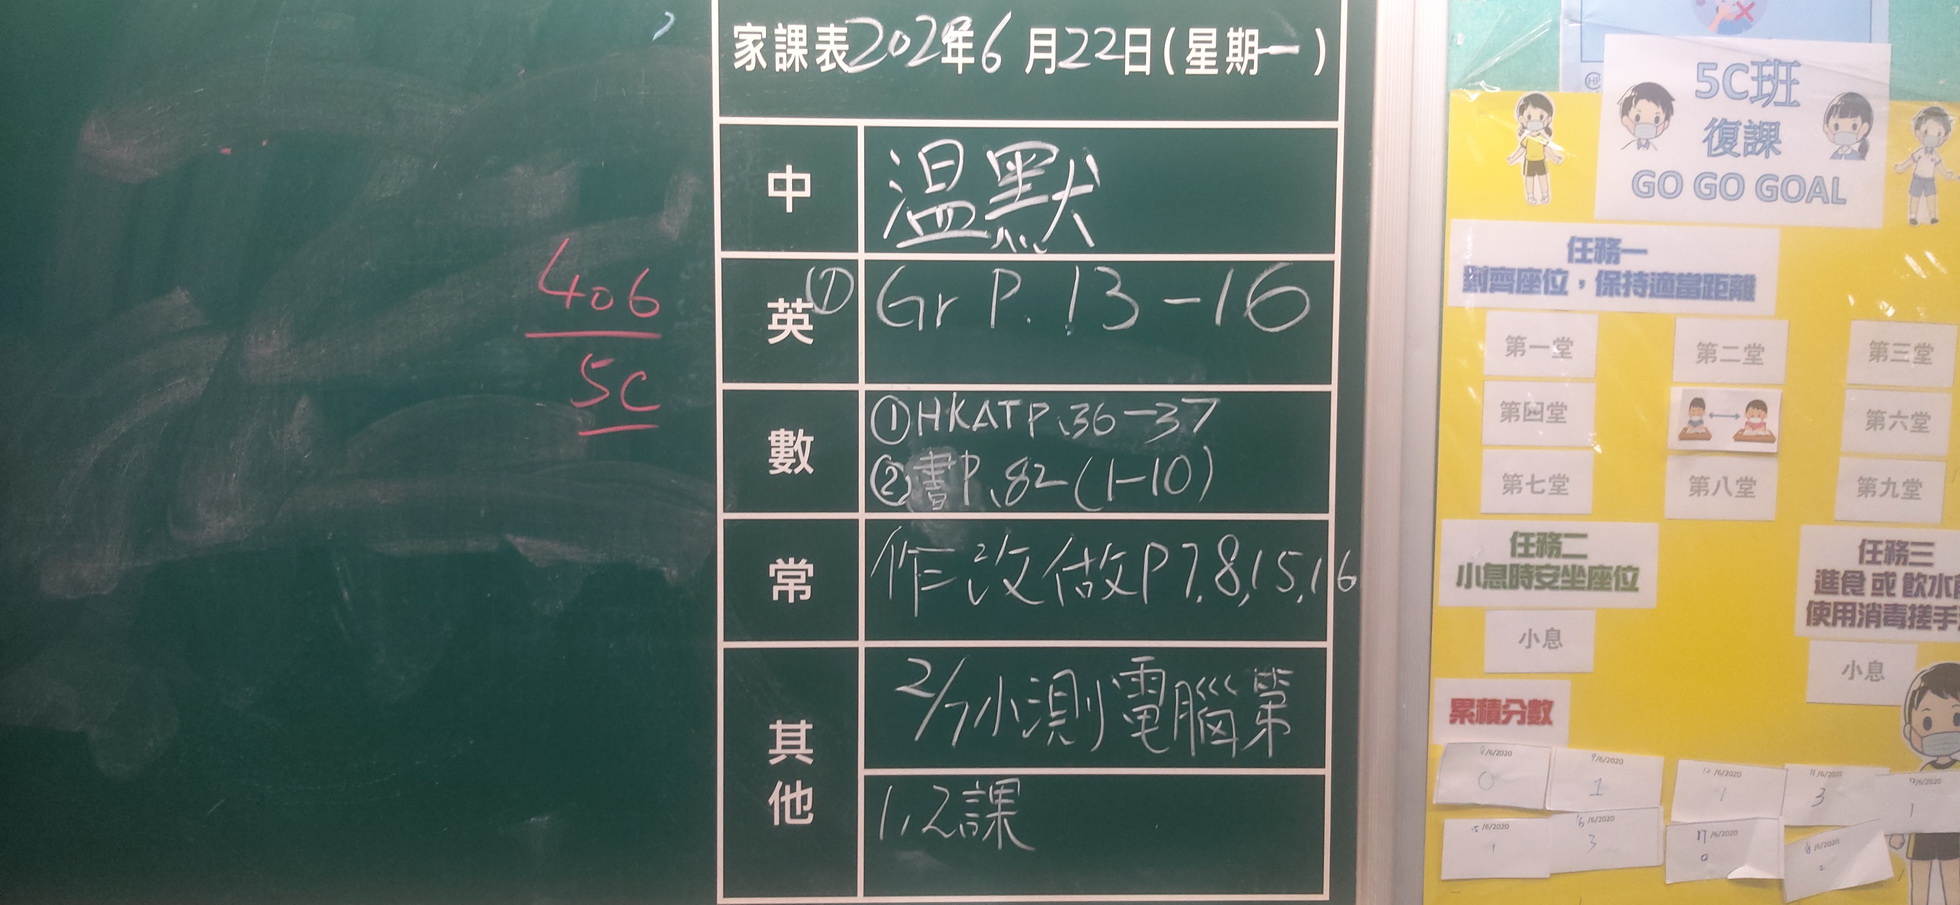 家課表2020年6月22日(星期一)
中
溫默
英
① Gr P. 13-16
數
①HKAT P.36-37
②書P.82(1-10)
常
作改做P7,8,15,16
其他
2/7小測電腦第
1,2課
406
5C
5C班
復課
GO GO GOAL
任務一
對齊座位,保持適當距離
第一堂 第二堂 第三堂
第四堂 第六堂
第七堂 第八堂 第九堂
任務二
小息時安坐座位
任務三
進食 或 飲水
使用消毒搓手
小息
小息
累積分數
9/6/2020
1
3
1
15/6/2020
1
16/6/2020
3
17/6/2020
0